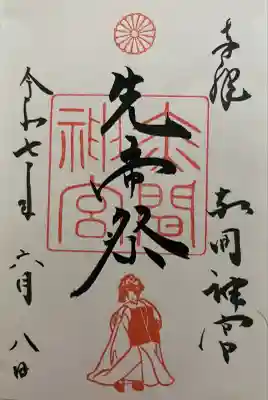 奉拝
赤間神宮
先帝祭
赤間神宮
令和七年六月八日